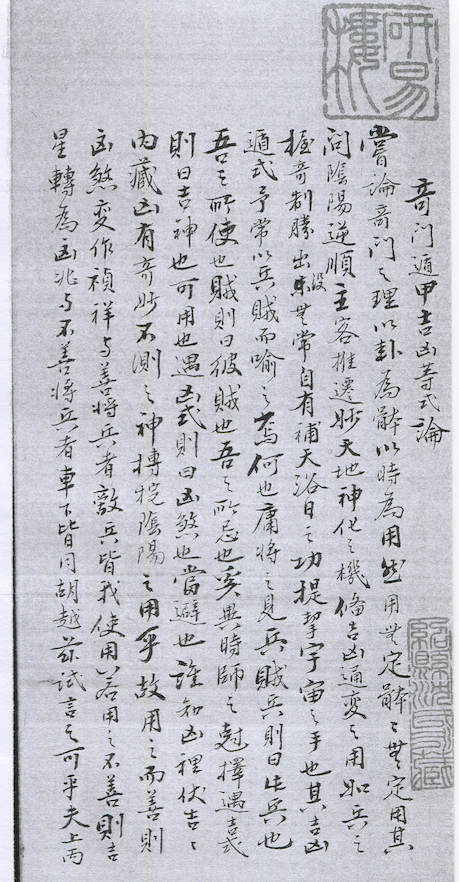 研易樓
奇門遁甲吉凶等式論
嘗論奇門之理以卦為躰以時為用然用無定躰〻無定用其
問陰陽逆順主客推遷妙天地神化之機脩吉凶通變之用如兵之
握奇制勝出没無常自有補天浴日之功提挈宇宙之手也其吉凶
遁式予常以兵賊而喻之焉何也庸將之見兵賊兵則曰此兵也
吾之所使也賊則曰彼賊也吾之所忌也奚異時師之尅擇遇吉式
則曰吉神也可用也遇凶式則曰凶煞也當避也誰知凶裡伏吉〻
內藏凶有奇妙不測之神摶捖陰陽之用乎故用之而善則
凶煞變作禎祥与善將兵者敵兵皆我使用若用之不善則吉
星轉為凶兆与不善將兵者車下皆同胡越茲試言之可乎夫上丙